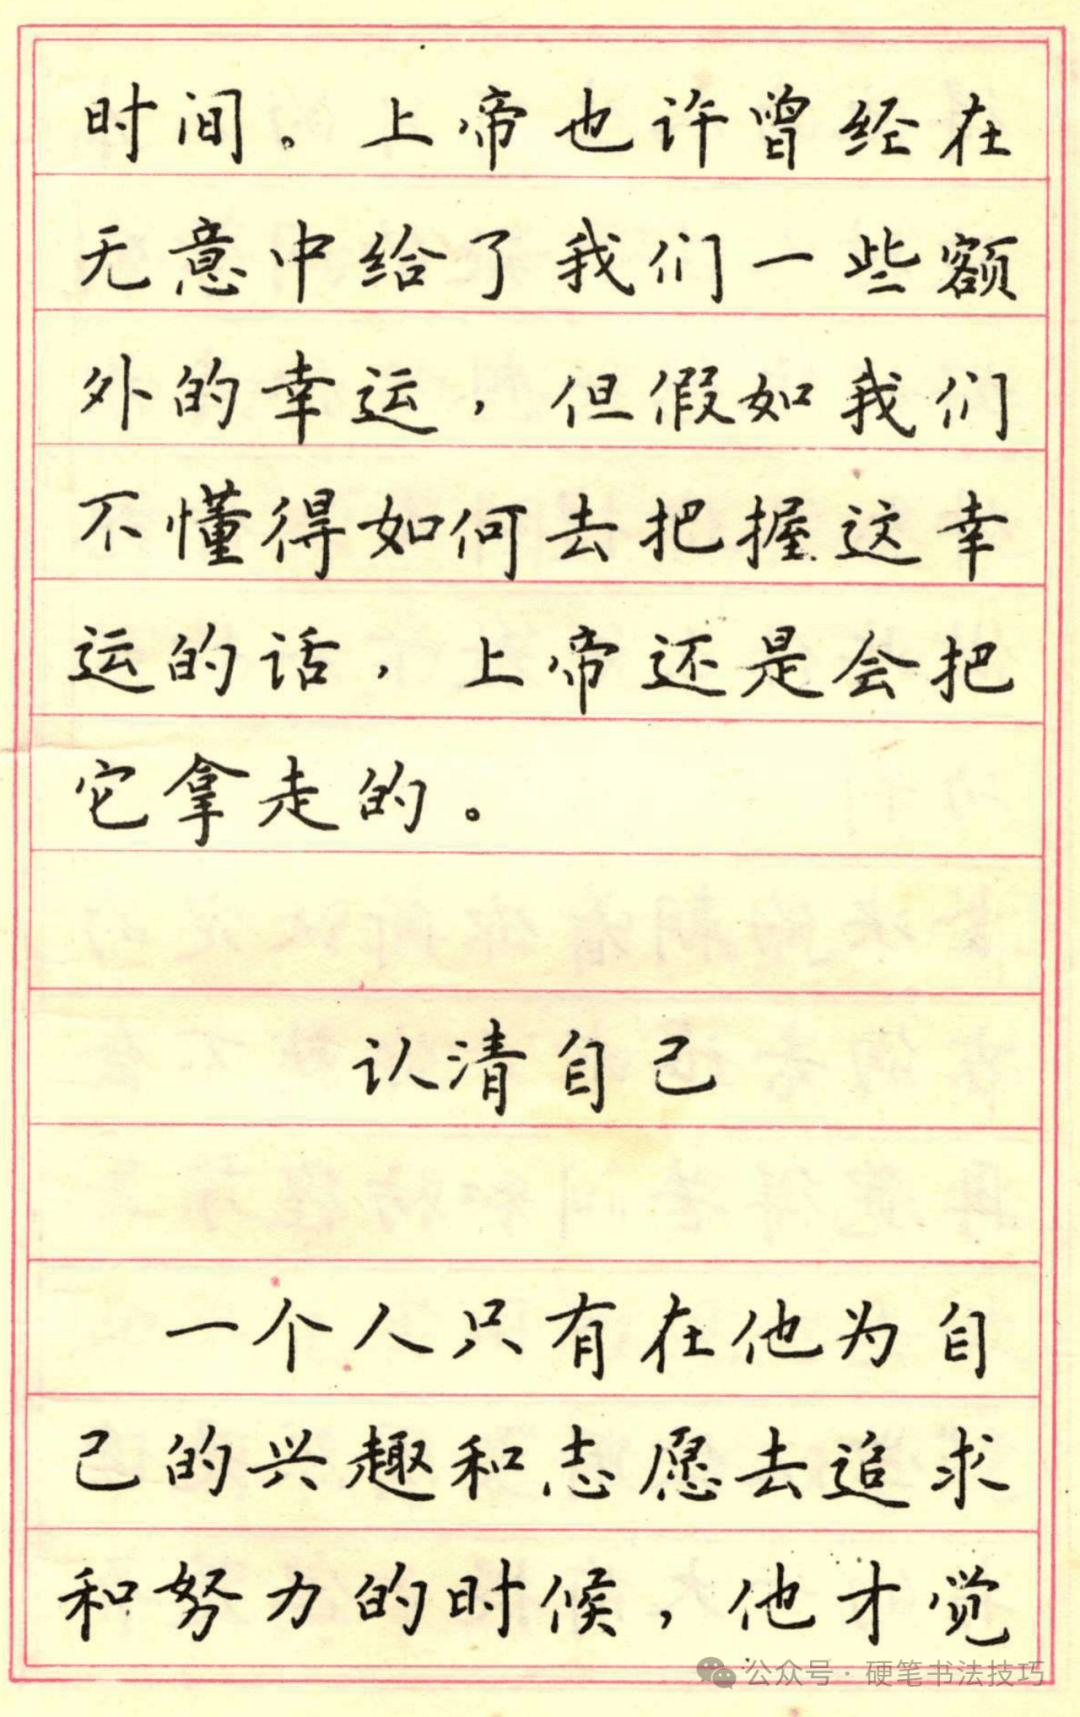 时间。上帝也许曾经在
无意中给了我们一些额
外的幸运，但假如我们
不懂得如何去把握这幸
运的话，上帝还是会把
它拿走的。
认清自己
一个人只有在他为自
己的兴趣和志愿去追求
和努力的时候，他才觉
公众号·硬笔书法技巧